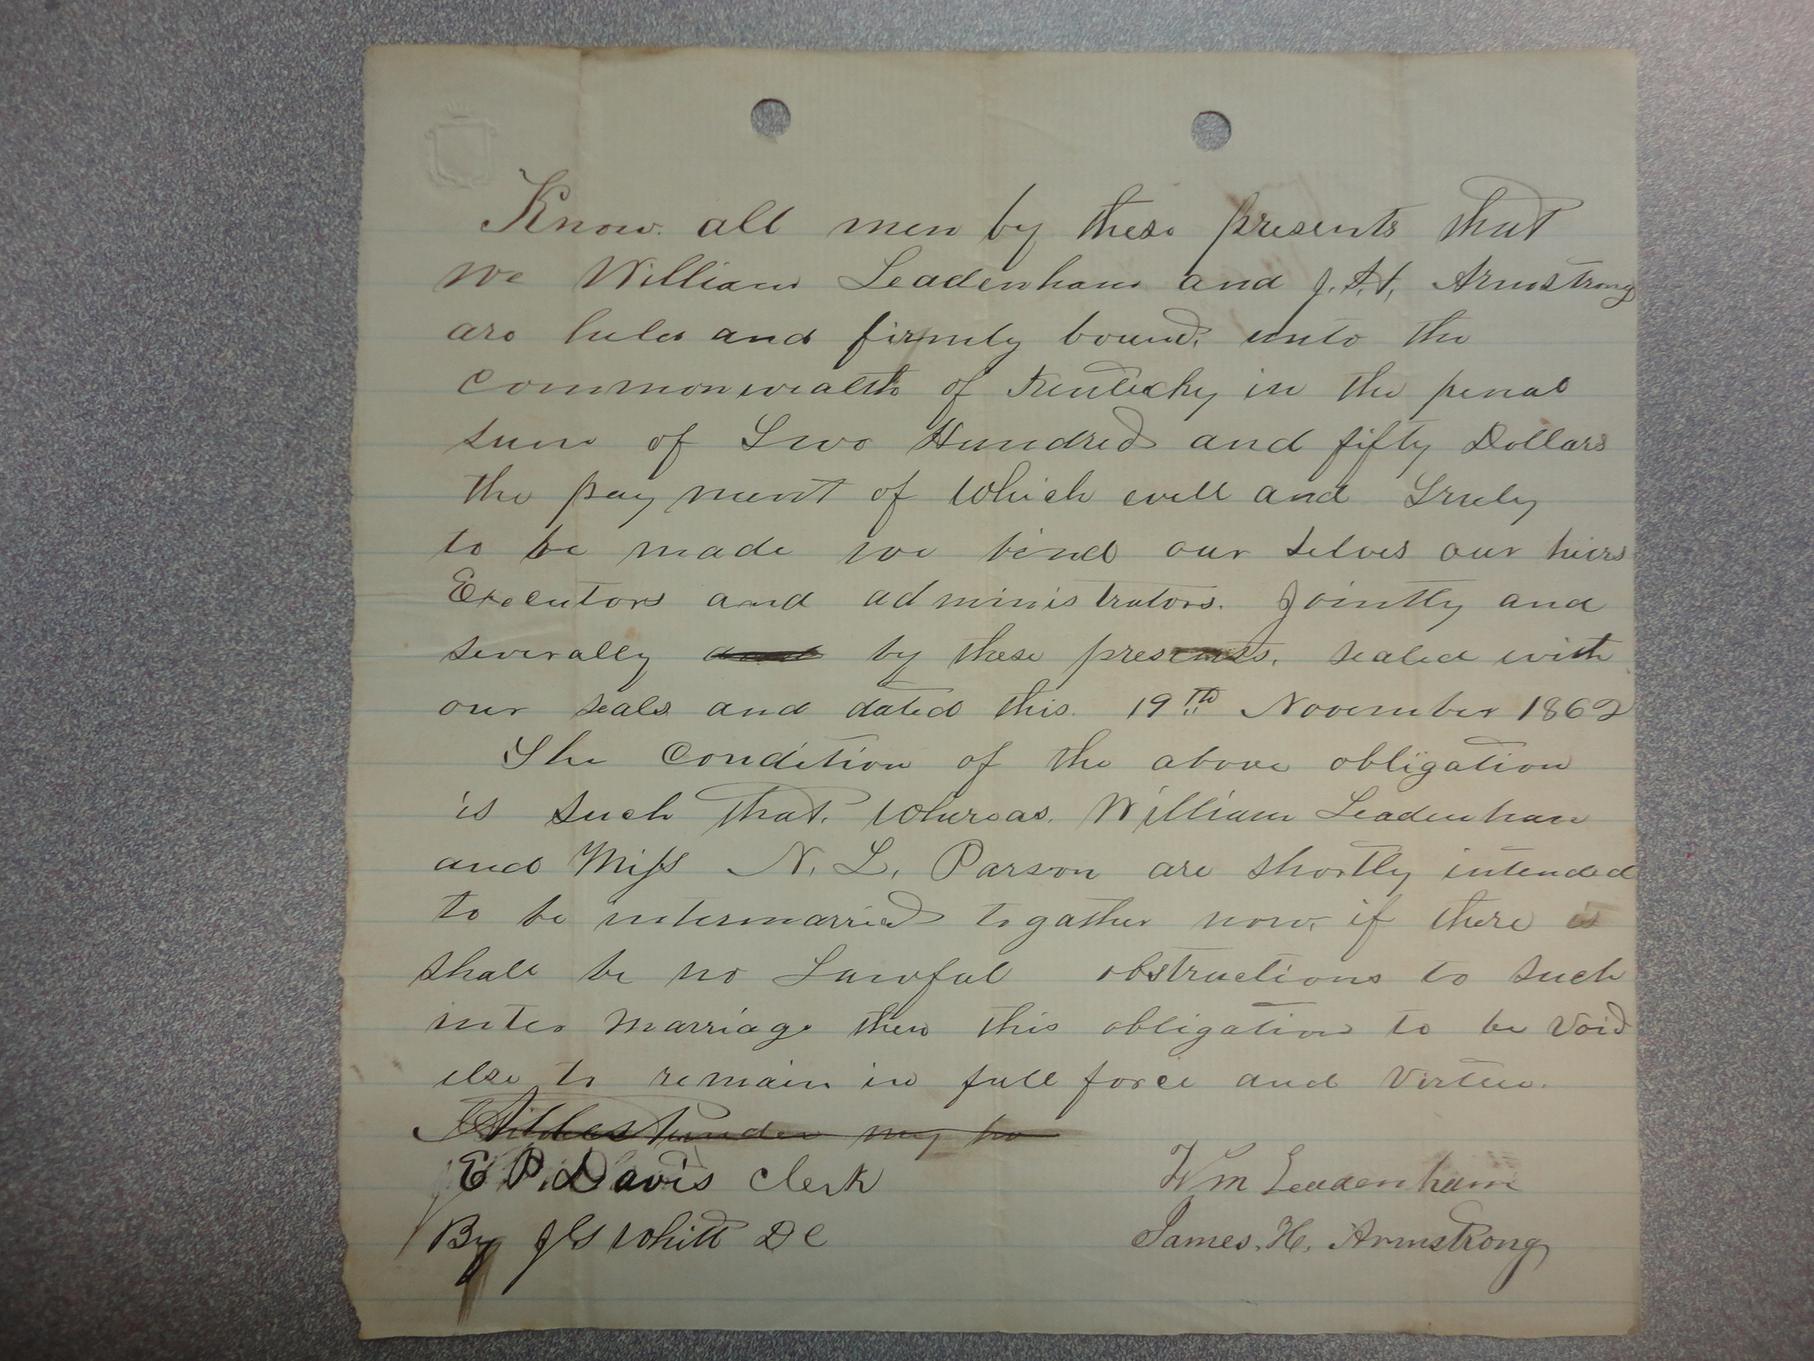 Know all men by these presents that
we William Leadenham and J. H. Armstrong
are held and firmly bound, unto the
Commonwealth of Kentucky in the penal
sum of Two Hundred and fifty Dollars
the pay ment of which well and Truly
to be made we bind our selves our heirs
Executors and administrators. Jointly and
severally and by these presents. sealed with
our seals and dated this 19th November 1862
The Condition of the above obligation
is such that, Whereas, William Leadenham
and Miss N. L. Parson are shortly intended
to be intermarried togather now, if there is
shall be no Lawful obstructions to such
inter marriage then this obligation to be Void
else to remain in full force and Virtue.
Attest under my ha
E P. Davis Clerk
Wm Leadenham
By J S Whitt DC
James. H. Armstrong